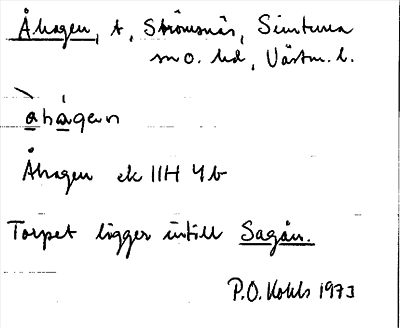 Åhagen, t, Strömsnäs, Simtuna
sn o. hd, Västm. l.
àhágen
Åhagen ek 11H 4b
Torpet ligger intill Sagån.
P.O. 1973